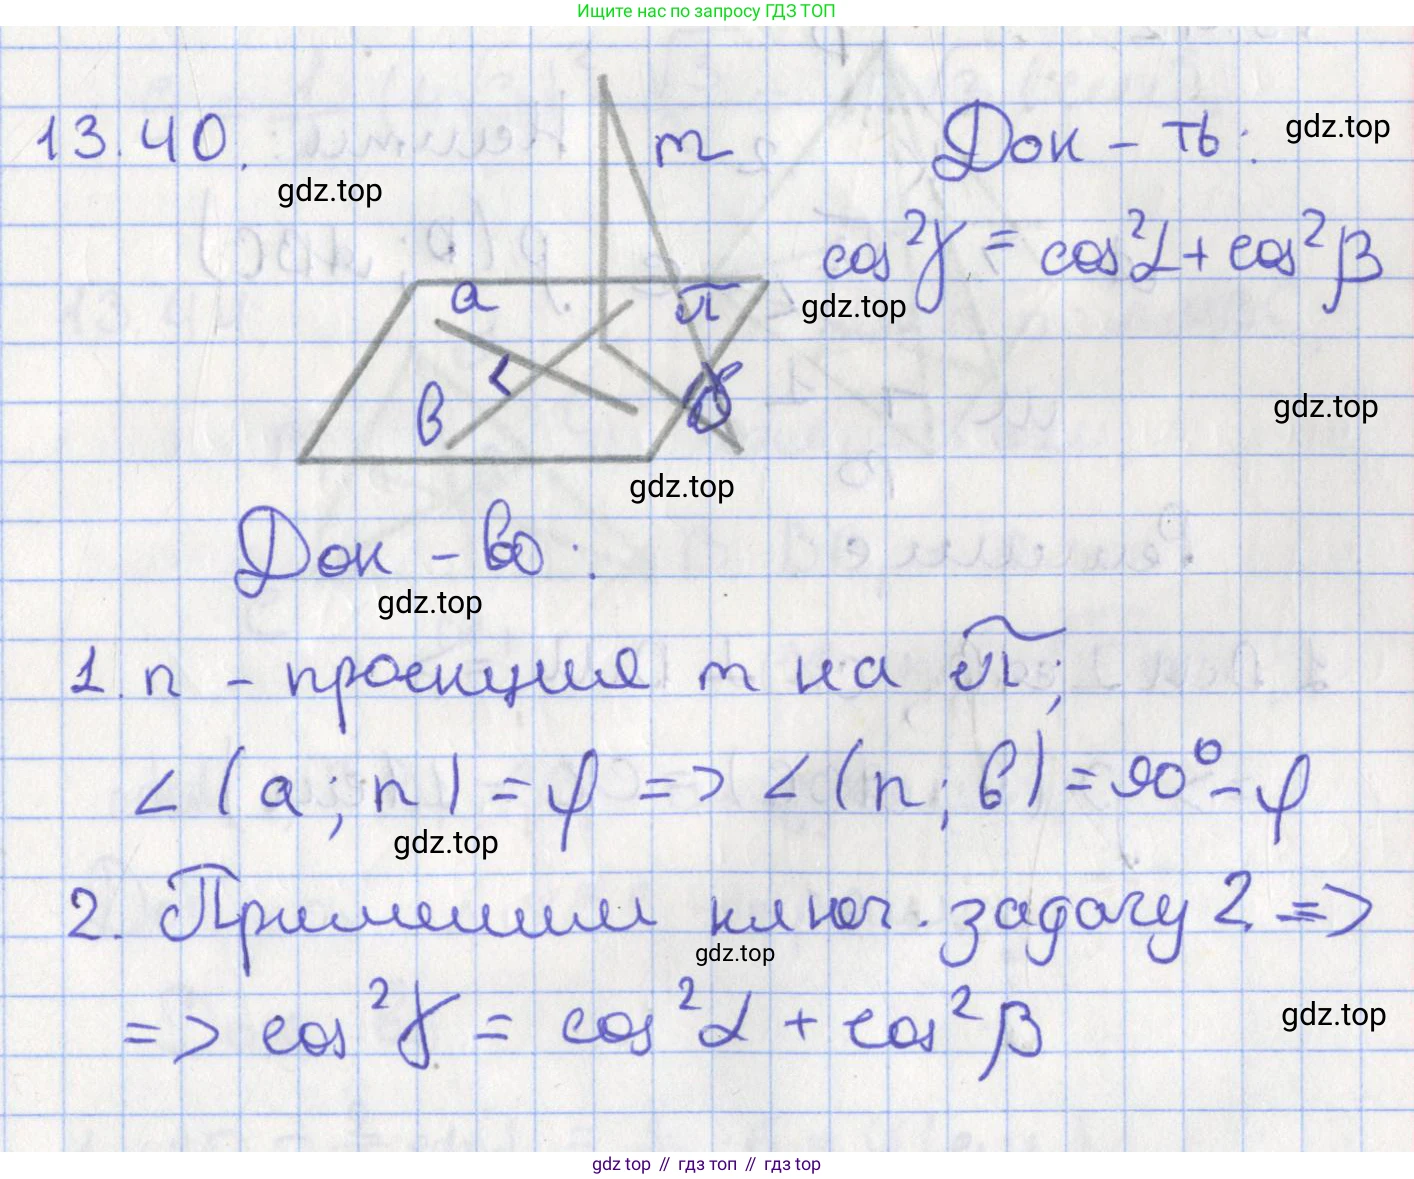 Ищите нас по запросу ГДЗ ТОП
13.40.
gdz.top
m
Док-ть:
gdz.top
cos²γ = cos²α + cos²β
gdz.top
a
π
b
γ
gdz.top
gdz.top
Док-во:
gdz.top
1. n - проекция m на π;
∠(a; n) = φ => ∠(n; b) = 90° - φ
gdz.top
2. Применим ключ. задачу 2 =>
gdz.top
=> cos²γ = cos²α + cos²β
gdz.top
gdz top // гдз топ // gdz top